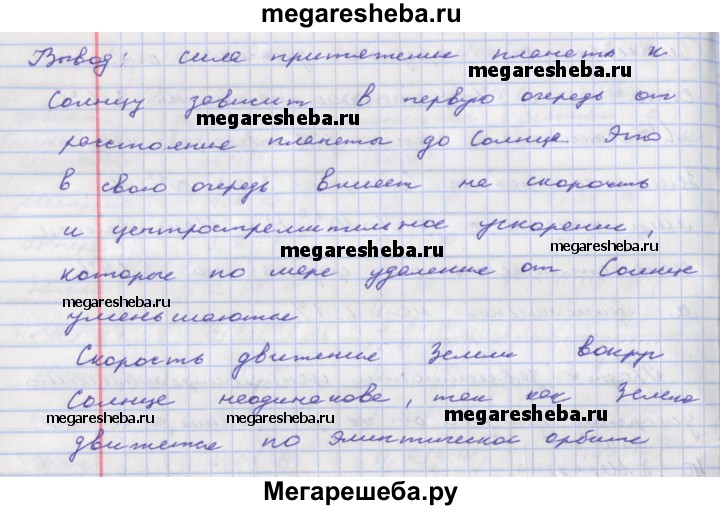 megaresheba.ru
Вывод: сила притяжение планеты к
megaresheba.ru
Солнцу зависит в первую очередь от
megaresheba.ru
расстояние планеты до Солнце Это
в свою очередь влияет на скорость
и центростремительное ускорение,
megaresheba.ru
megaresheba.ru
которые по мере удаление от Солнце
megaresheba.ru
уменьшаются
Скорость движение Земли вокруг
Солнце неодинакова, так как Земла
megaresheba.ru
megaresheba.ru
megaresheba.ru
движется по элиптическое орбите
Мегарешеба.ру